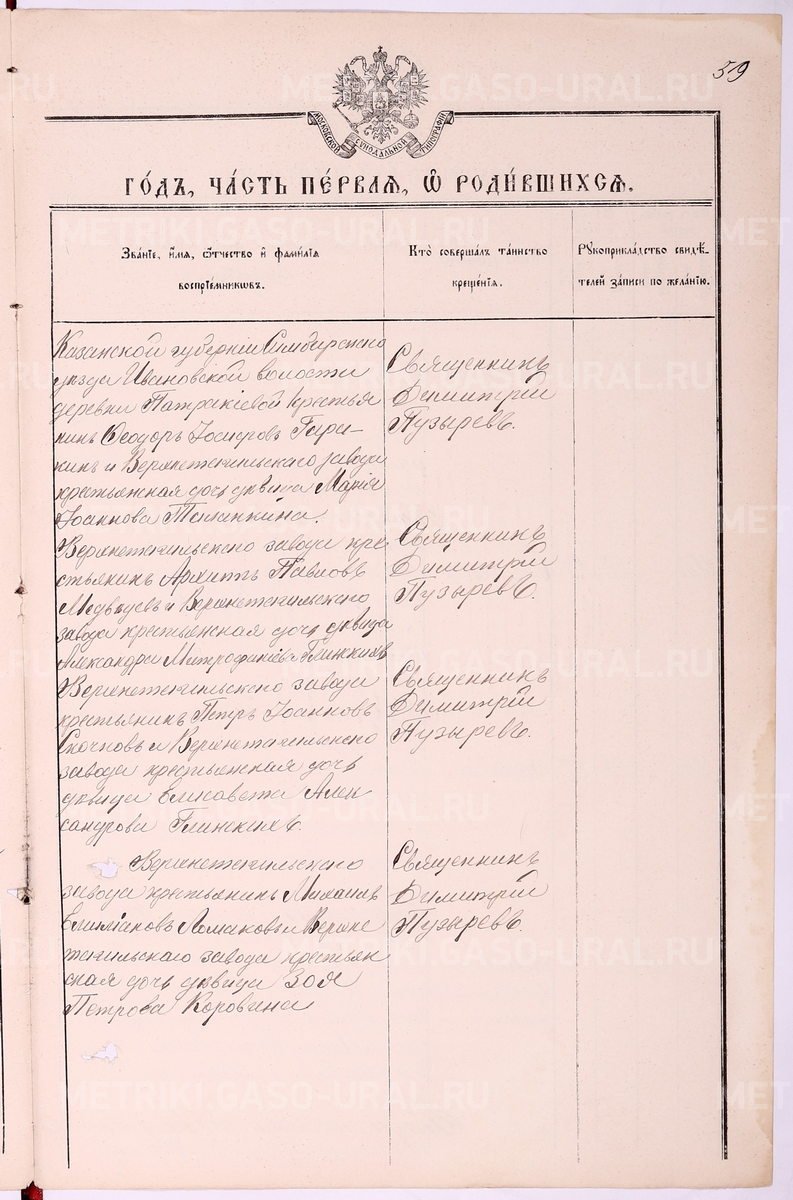 59
МОСКОВСКОЙ СѴНОДАЛЬНОЙ ТИПОГРАФІИ
ГО́ДЪ, ЧА́СТЬ ПЕ́РВАѦ, Ѽ РОДИ́ВШИХСѦ.
Зва́нїе, и́мѧ, ѻ҆́тчество и҆ фами́лїѧ
воспрїе́мникѡвъ.
Кто̀ соверша́лъ та́инство
креще́нїѧ.
Рꙋкоприкла́дство свидѣ́-
телей за́писи по жела́нїю.
Казанской губерніи Симбирскаго
уезда Ивановской волости
деревни Патракіевой крестья
нинъ Ѳеодоръ
кинъ и Верхнетагильскаго завода
крестьянская дочь девица Марія
Іоаннова
Священникъ
Димитрій
Пузыревъ.
Верхнетагильскаго завода кре
стьянинъ Архипъ Павловъ
Медведевъ и Верхнетагильскаго
завода крестьянская дочь девица
Александра Митрофаніева Глинскихъ
Священникъ
Димитрій
Пузыревъ.
Верхнетагильскаго завода
крестьянинъ Петръ Іоанновъ
Скочковъ и Верхнетагильскаго
завода крестьянская дочь
девица Елисавета Алек
сандрова Глинскихъ.
Священникъ
Димитрій
Пузыревъ.
Верхнетагильскаго
завода крестьянинъ Михаилъ
Емиліановъ Ломаковъ и Верхне
тагильскаго завода крестьян
ская дочь девица Зоя
Петрова Коровина
Священникъ
Димитрій
Пузыревъ.
METRIKI.GASO-URAL.RU